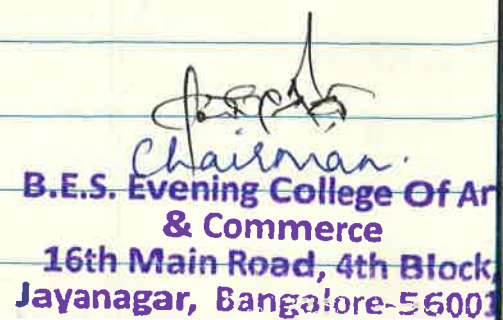 Chairman.
B.E.S. Evening College Of Ar
& Commerce
16th Main Road, 4th Block
Jayanagar, Bangalore-56001